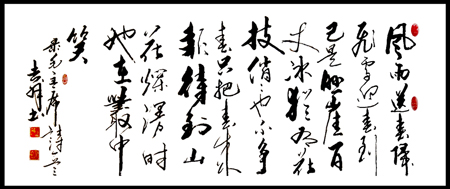 風雨送春歸
飛雪迎春到
已是懸崖百
丈冰猶有花
枝俏々也不爭
春只把春來
報待到山
花爛漫時
她在叢中
笑
毛主席詩